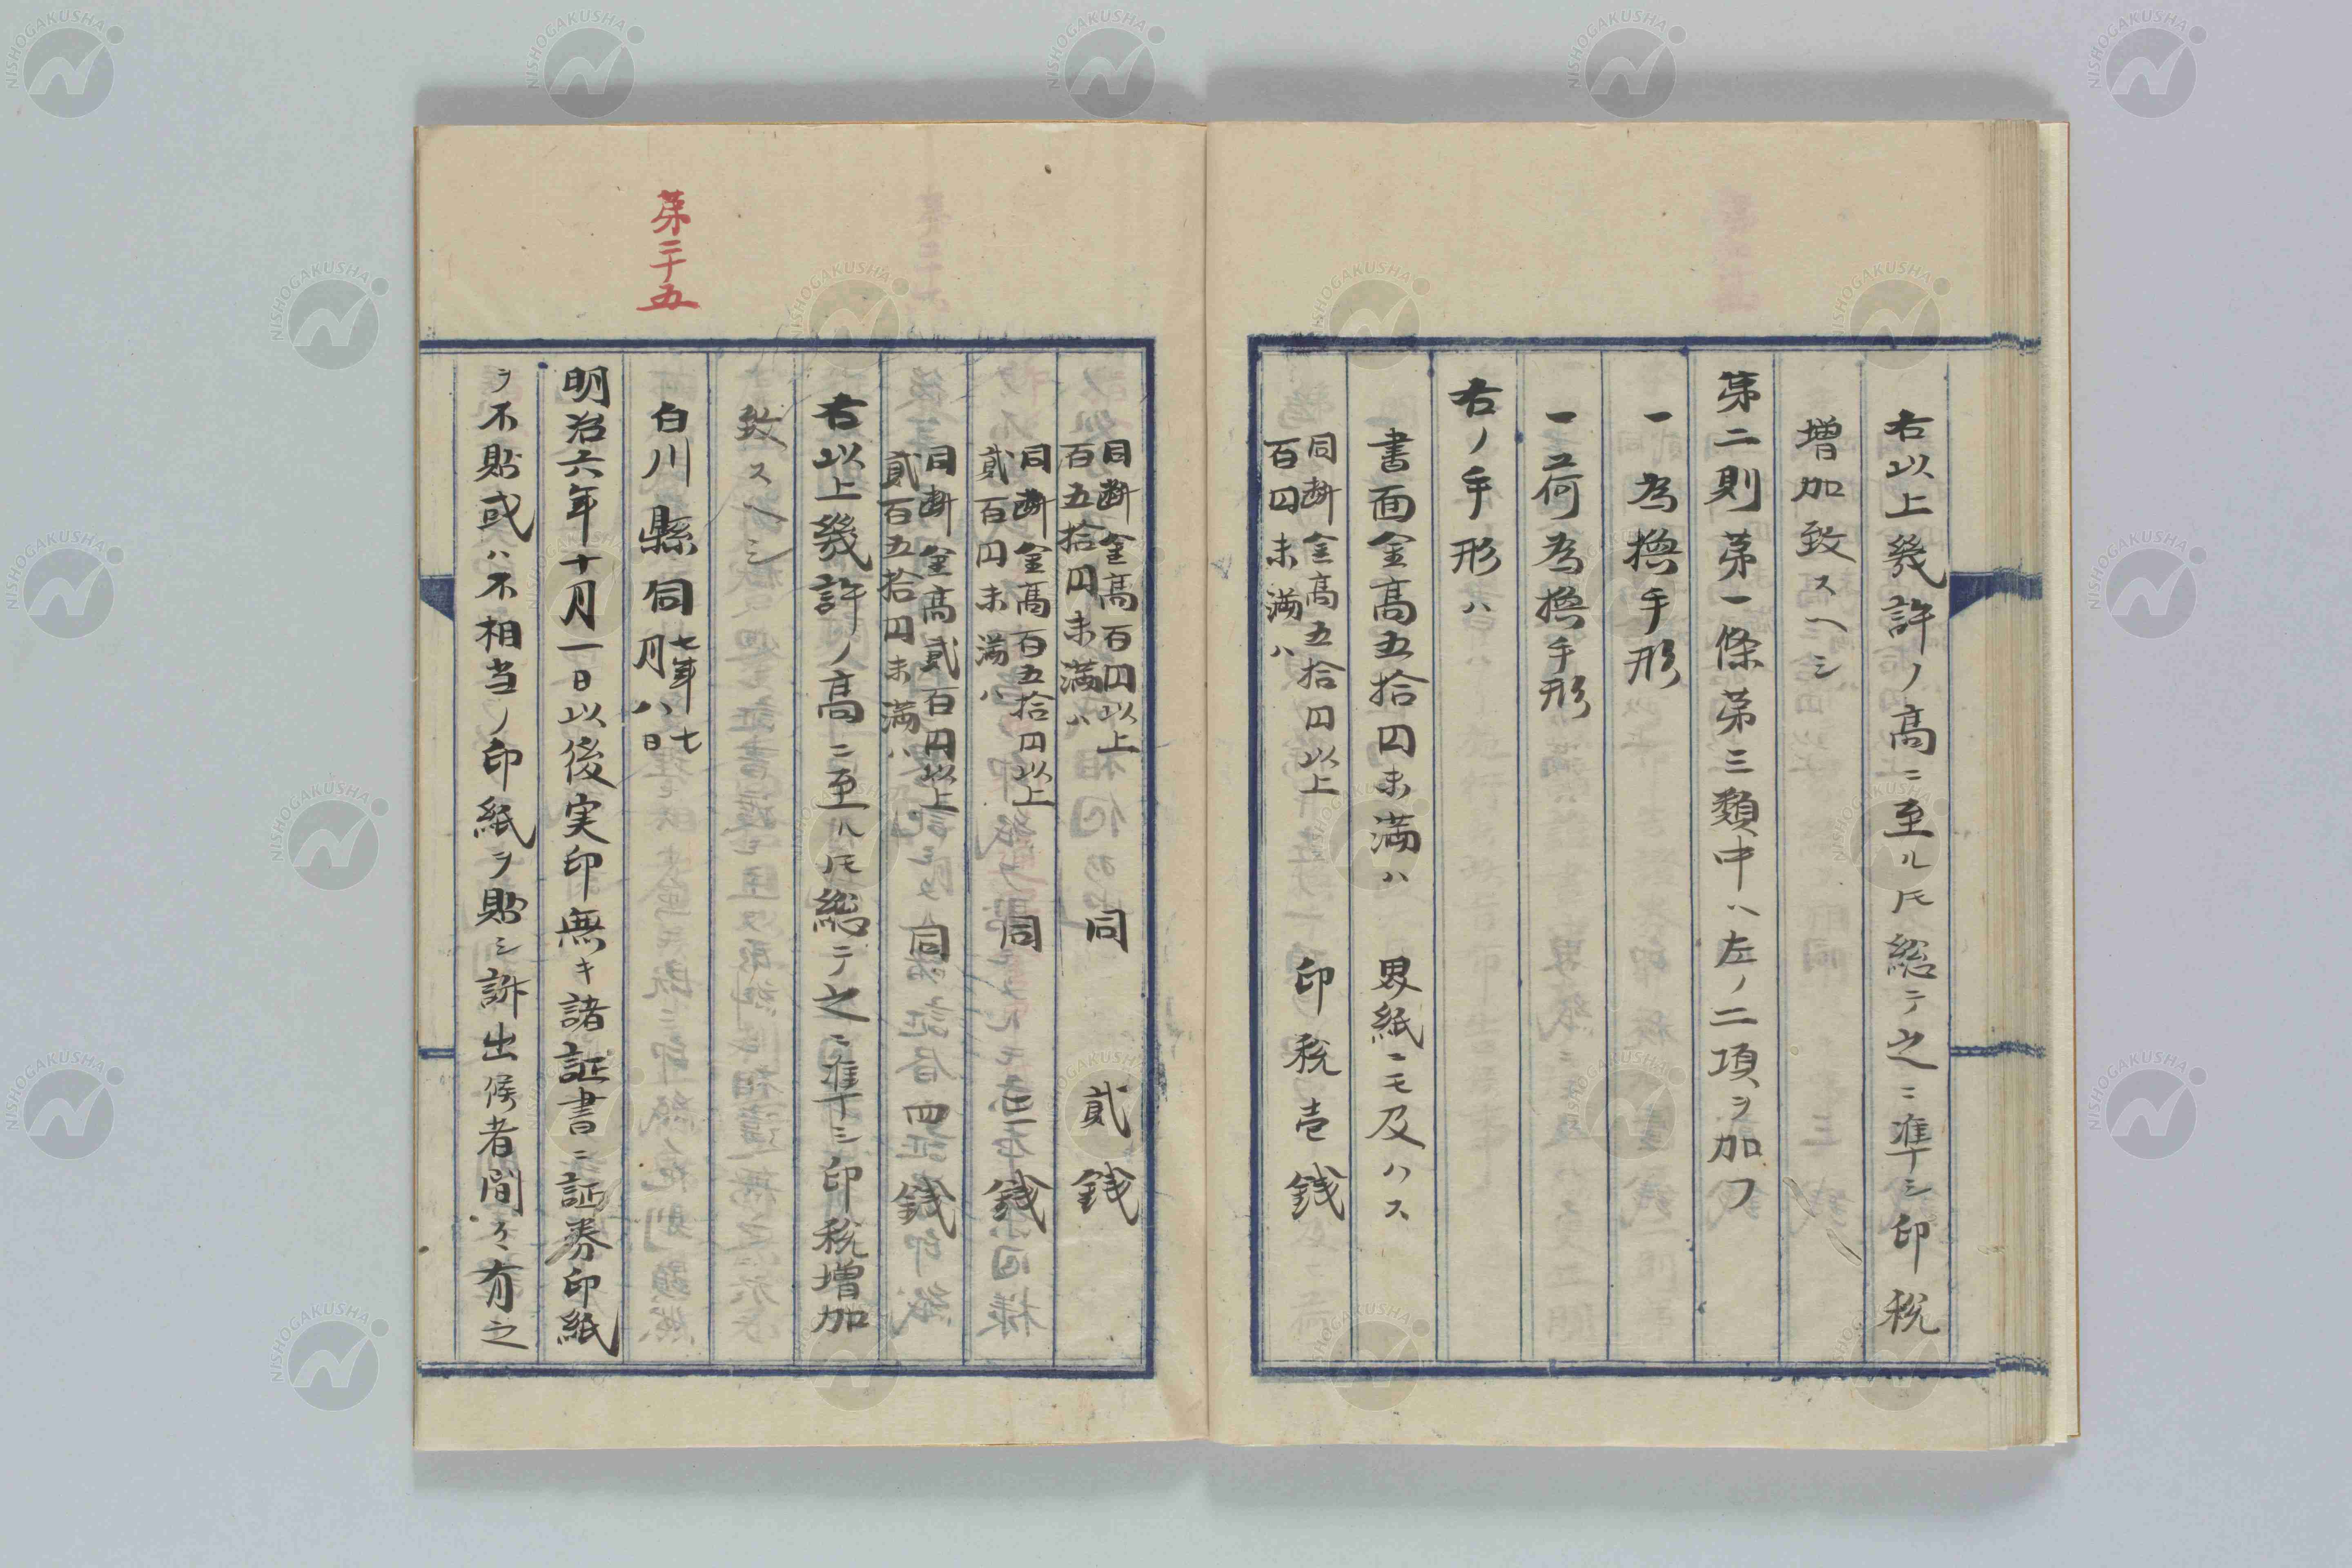 右以上幾許ノ高ニ至ルモ総テ之ニ準シ印税
増加致スヘシ
第二則第一條第三類中ハ左ノ二項ヲ加フ
一 為換手形
一荷為換手形
右ノ手形ハ
書面金高五拾円未満ハ 界紙ニモ及ハス
同断金高五拾円以上
百円未満ハ 印税壱銭
同断金高百円以上
百五拾円未満ハ 同 貳銭
同断金高百五拾円以上
貳百円未満ハ 同 三銭
同断金高貳百円以上
貳百五拾円未満ハ 同 四銭
右以上幾許ノ高ニ至ルモ総テ之ニ準シ印税増加
致スヘシ
第二十五
白川縣伺 七年七
月八日
明治六年十月一日以後実印無キ諸証書ニ証券印紙
ヲ不貼或ハ不相当ノ印紙ヲ貼シ訴出候者間々有之
NISHOGAKUSHA